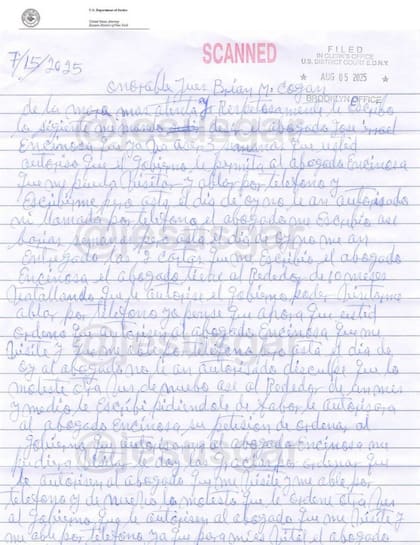 U.S. Department of Justice
United States Attorney
Eastern District of New York
SCANNED
FILED
IN CLERK'S OFFICE
U.S. DISTRICT COURT E.D.N.Y.
★ AUG 05 2025 ★
BROOKLYN OFFICE
7/15/2025
onorable Jues Brian M. Cogan
de la mas atenta y Respetosamente Escribo
la mando de mi abogado Jose
Encinosa ya semanas que usted
autoriso que el Gobierno le permita al abogado Encinosa
que me pueda visitar y ablar por telefono y
Escribirme pero asta el dia de oy no le an autorisado
ni llamada por telefono el abogado me Escribio ase
barias semanas pero asta el dia de oy no me an
Entregado las 2 cartas que me Escribio el abogado
Encinosa el abogado lleba al Rededor de 10 meses
que le autorise el Gobierno poder
ablar por Telefono yo pense que aora que usted
ordeno que autorisen al abogado Encinosa que me
visite y que me able por telefono pero asta el dia de
oy al abogado no le an autorisado disculpe que lo
moleste otra bes de nuebo ase al Rededor de un mes
y medio le Escribi pidiendole de fabor le autorisara
al abogado Encinosa su petision de ordenar al
Gobierno que autorisara al abogado Encinosa me
visitar le doy las Gracias por ordenar que
lo autorisen al abogado que me visite y me able por
telefono y de nuebo lo molesto que le ordene otra bes
al Gobierno que le autorisen al abogado que me visite y
me able por telefono ya que para mi es el abogado
@jesusgar
@jesusgar
@jesusgar
@jesusgar